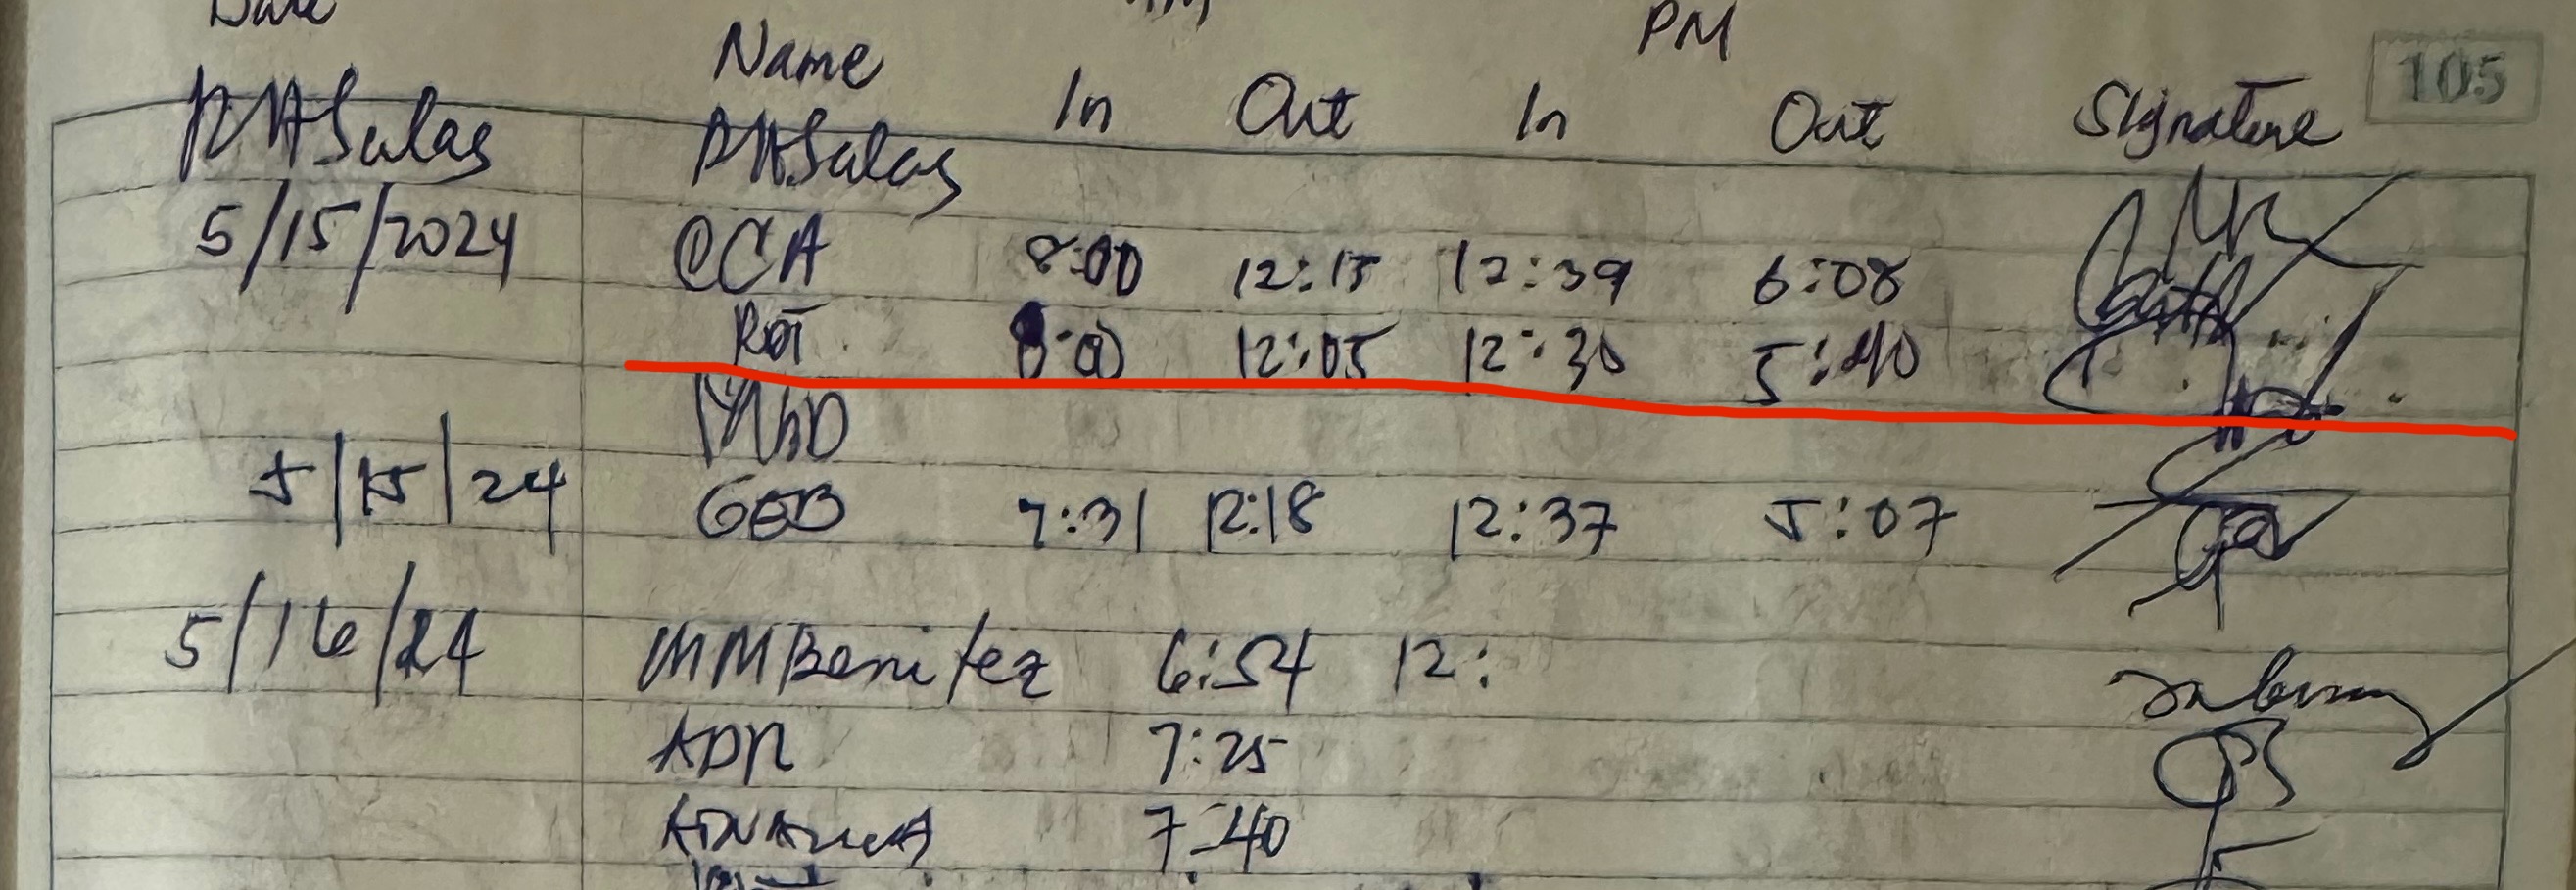 Date AM PM
Name In Out In Out Signature 105
RHSalas RHSalas
5/15/2024 CCA 8:00 12:15 12:39 6:08
ROT 8:00 12:05 12:30 5:40
5/15/24 GEB 7:31 12:18 12:37 5:07
5/16/24 MMBenitez 6:54 12:
ADR 7:25
7:40